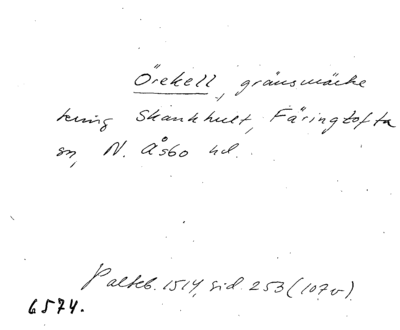 Örekell, gränsmärke
kring Skankhult, Färingtofta
sn, N. Åsbo hd.
Palteb. 1514, sid. 253 (107 v).
6574.